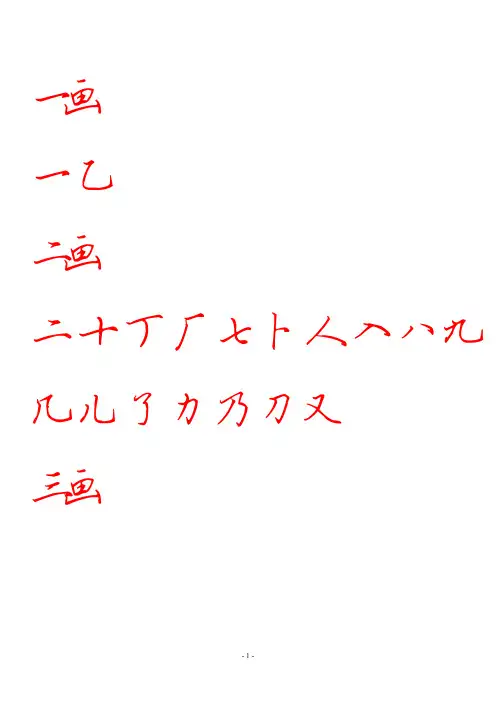 一画
一乙
二画
二十丁厂七卜人入八九
几儿了力乃刀又
三画
- 1 -